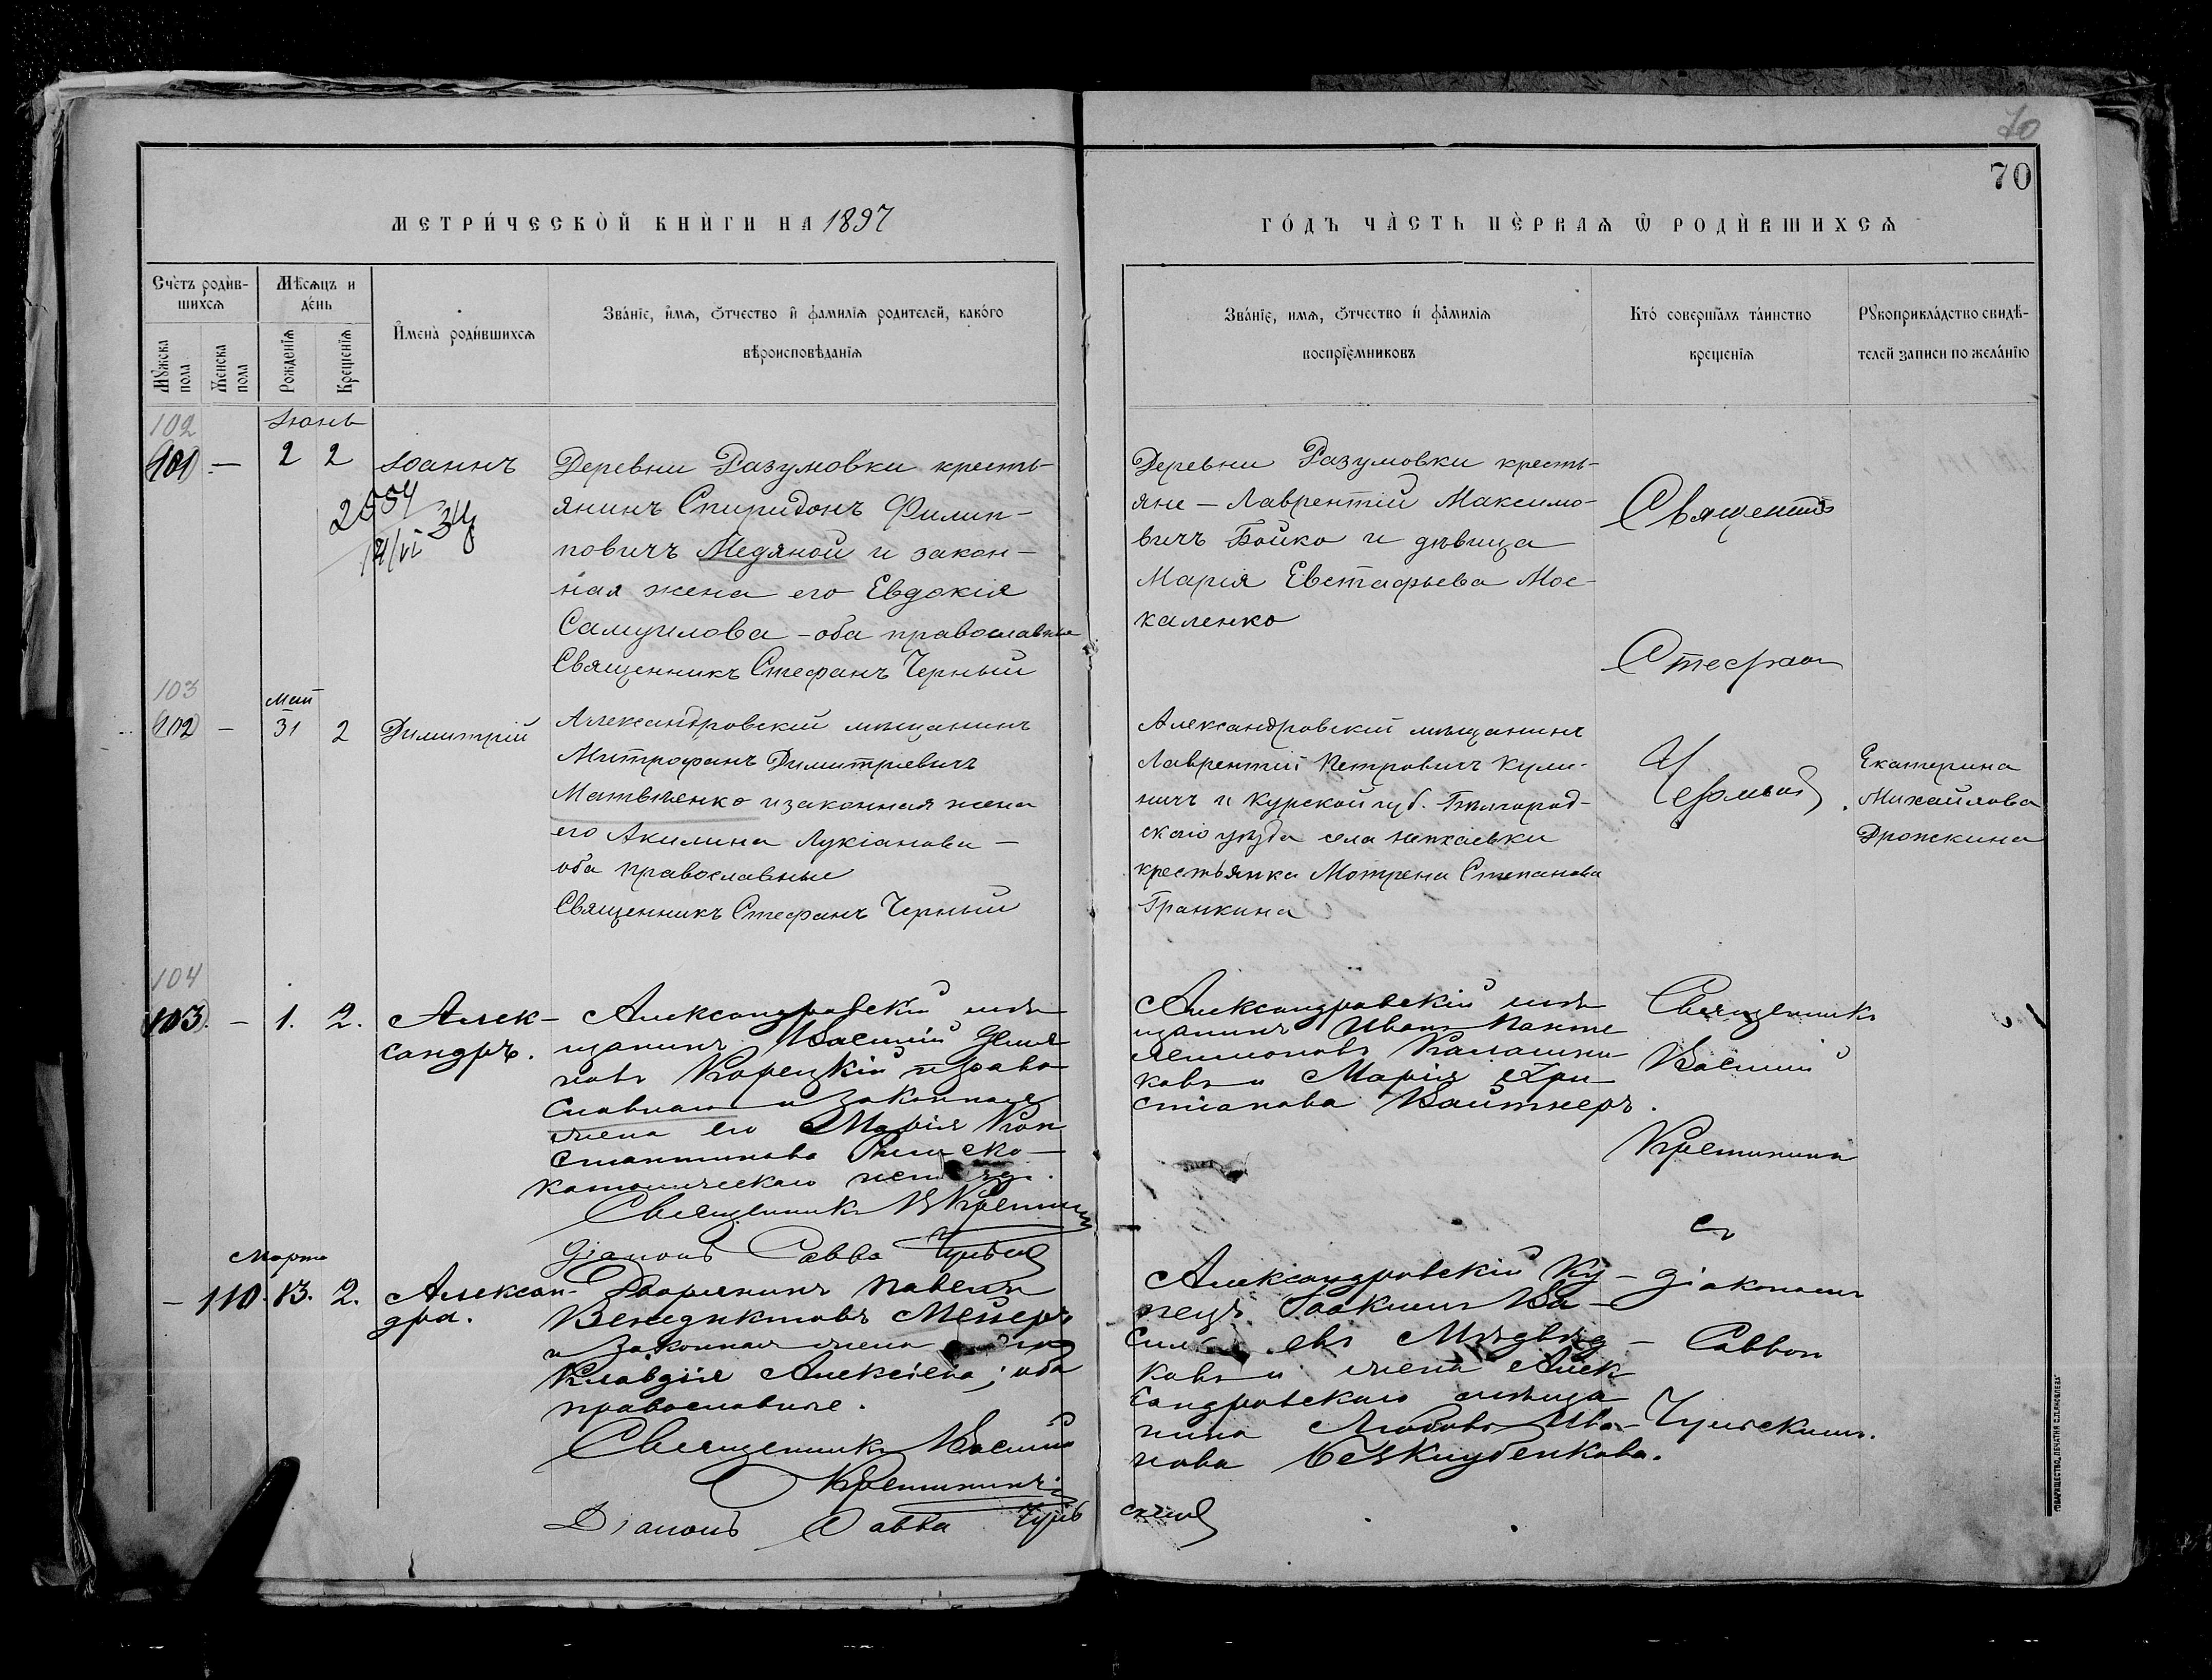 70
70
МЕТРИ́ЧЕСКО̀Й КНЍГИ НА 1897
ГО́ДЪ ЧА̀СТЬ ПЕ́РВАЯ Ѡ РОДИ́ВШИХСЯ
Сче́тъ роди́в-
шихся
Мѣ́сяцъ и
де́нь
Мꙋ́жска
пола
Же́нска
пола
Рожде́нїя
Креще́нїя
И҆мена̀ роди́вшихся
Зва́нїе, и҆мя, ѻ҆́тчество и҆ фами́лїя роди́телей, како́го
вѣроисповѣ́данїя
Зва́нїе, имя, ѻ҆́тчество и҆ фами́лїя
воспрїе́мниковъ
Кто́ соверша́лъ та́инство
креще́нїя
Рꙋкоприкла́дство свидѣ́-
телей записи по жела́нїю
102
Іюнь
101 — 2 2 Іоаннъ
2554
Деревни Разумовки кресть-
янинъ Спиридонъ Филип-
повичъ Медяной и закон-
ная жена его Евдокія
Самуилова - оба православные
Священникъ Стефанъ Черный
Деревни Разумовки кресть-
яне - Лаврентій Максимо-
вичъ Бойко и дѣвица
Марія Евстафьева Мос-
каленко
Священникъ
Стефан
Черный
103
Май
102 — 31 2 Димитрій
Александровскій мѣщанинъ
Митрофанъ Димитріевичъ
Матвіенко и законная жена
его Акилина Лукіанова —
оба православные
Священникъ Стефанъ Черный
Александровскій мѣщанинъ
Лаврентій Петровичъ Кули-
ничъ и Курской губ. Бѣлгород-
скаго уѣзда села
крестьянка Мотрена Степанова
Гранкина
Екатерина
Михайлова
Дрожкина
104
103. — 1. 2. Алек-
сандръ.
Александровскій мѣ-
щанинъ Василій
новъ Корецкій право
славнаго и законная
жена его Марія Кон
стантинова Римско-
католическаго
Священникъ В Кремянин
Діаконъ Савва
Александровскій мѣ-
щанинъ Иванъ Панте
леимоновъ Калашни-
ковъ и Марія Хри-
стіанова Вайтнеръ.
Священникъ
Василій
Марта
— 110. 13. 2. Алексан-
дра.
Дворянинъ Павелъ
Венедиктовъ Мейеръ
и законная жена его
Клавдія Алексіева; оба
православные.
Священникъ Василій
Діаконъ Савва
Александровскій Ку-
пецъ Іоакимъ Ва-
сильевъ Медвѣд-
ковъ и жена Алек
сандровскаго мѣща-
нина Любовь Ива-
нова
съ
діакономъ
Саввою
ТОВАРИЩЕСТВО „ПЕЧАТНЯ С.П.ЯКОВЛЕВА“